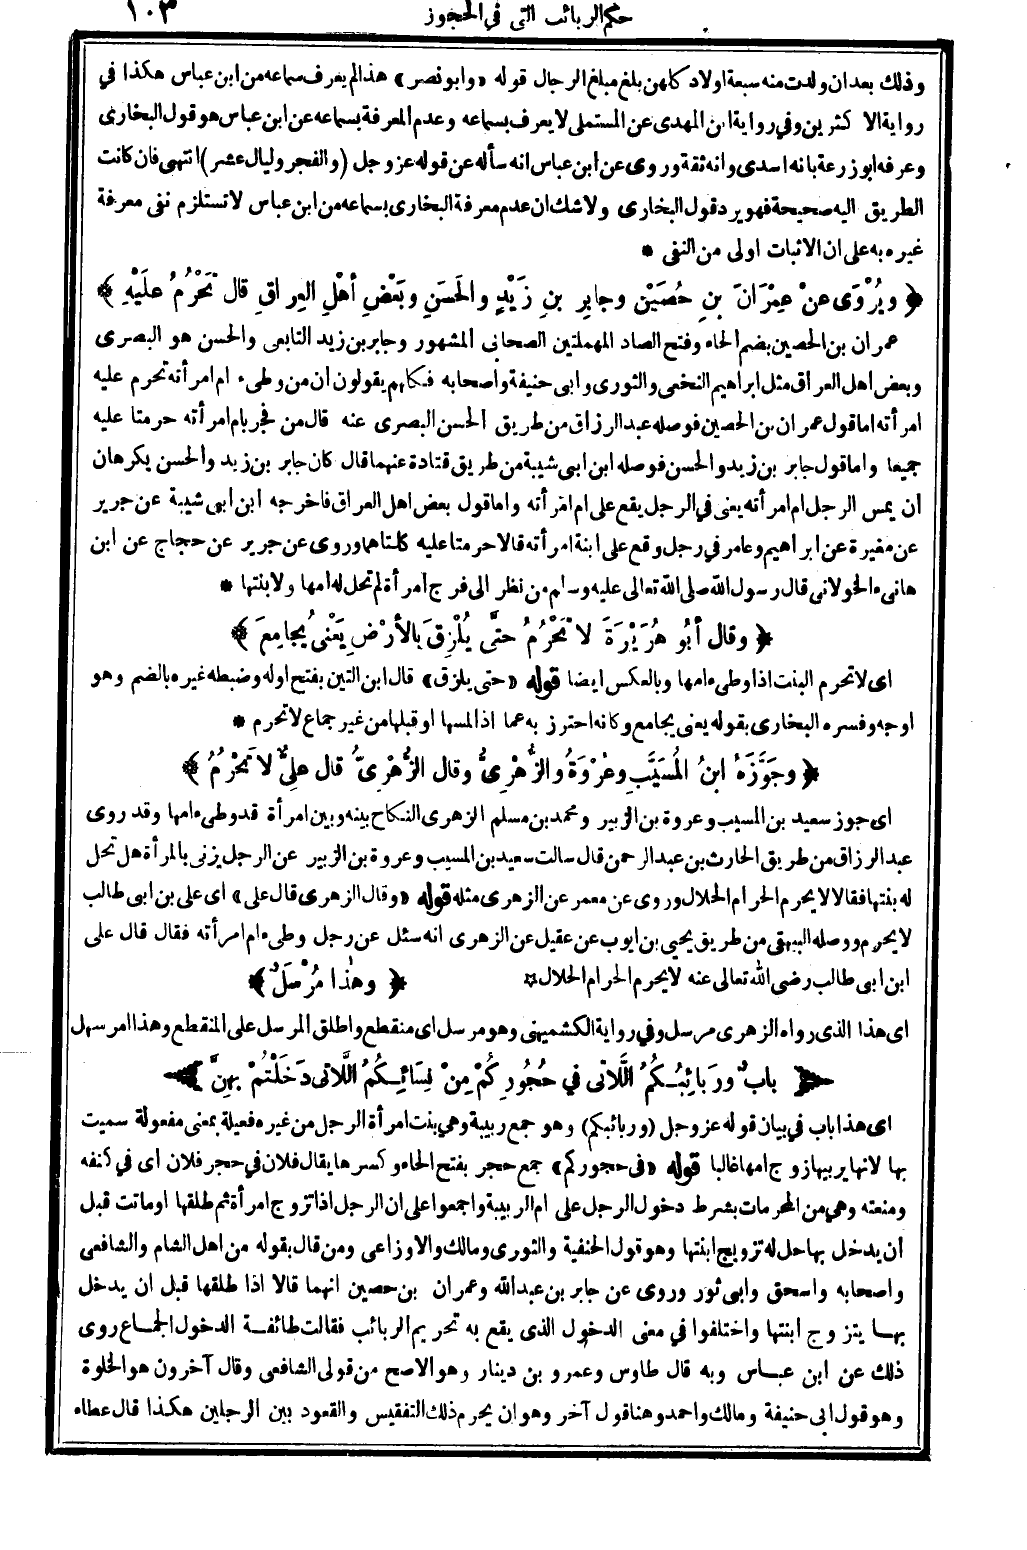 حكم الربائب التى في الحجوز
١٠٣
وذلك بعد ان ولدت منه سبعة اولاد كلهن بلغ مبلغ الرجال قوله «وابو نصر» هذا لم يعرف سماعه من ابن عباس هكذا في
رواية الاكثرين وفي رواية ابن المهدى عن المستملى لا يعرف بسماعه وعدم المعرفة بسماعه عن ابن عباس هو قول البخارى
وعرفه ابو زرعة بانه اسدى وانه ثقة وروى عن ابن عباس انه سأله عن قوله عز وجل (والفجر وليال عشر) انتهى فان كانت
الطريق اليه صحيحة فهو يرد قول البخارى ولا شك ان عدم معرفة البخارى بسماعه من ابن عباس لا تستلزم نفى معرفة
غيره به على ان الاثبات اولى من النفى *
﴿ ويُرْوَى عنْ عِمْرَانَ بنِ حُصَيْنٍ وجابِرِ بنِ زَيْدٍ والحَسَنِ وبَعْضِ أهْلِ العِراقِ قال تَحْرُمُ علَيْهِ ﴾
عمران بن الحصين بضم الحاء وفتح الصاد المهملتين الصحابى المشهور وجابر بن زيد التابعى والحسن هو البصرى
وبعض اهل العراق مثل ابراهيم النخعى والثورى وابى حنيفة واصحابه فكلهم يقولون ان من وطىء ام امرأته تحرم عليه
امرأته اما قول عمران بن الحصين فوصله عبد الرزاق من طريق الحسن البصرى عنه قال من فجر بام امرأته حرمتا عليه
جميعا واما قول جابر بن زيد والحسن فوصله ابن ابى شيبة من طريق قتادة عنهما قال كان جابر بن زيد والحسن يكرهان
أن يمس الرجل ام امرأته يعنى في الرجل يقع على ام امرأته واما قول بعض اهل العراق فاخرجه ابن ابى شيبة عن جرير
عن مغيرة عن ابراهيم وعامر في رجل وقع على ابنة امرأته قالا حرمتا عليه كلتاهما وروى عن جرير عن حجاج عن ابن
هانىء الخولانى قال رسول الله صلى الله تعالى عليه وسلم من نظر الى فرج امرأة لم تحل له امها ولا بنتها *
﴿ وقال أبُو هُرَيْرَةَ لا تَحْرُمُ حتَّى يُلْزِقَ بالأرْضِ يَعْنى يُجامِعَ ﴾
اى لا تحرم البنت اذا وطىء امها وبالعكس ايضا قوله «حتى يلزق» قال ابن التين بفتح اوله وضبطه غيره بالضم وهو
اوجه وفسره البخارى بقوله يعنى يجامع وكانه احترز به عما اذا لمسها او قبلها من غير جماع لا تحرم *
﴿ وجَوَّزَهُ ابنُ المُسَيَّبِ وعُرْوَةُ والزُّهْرِىُّ وقال الزُّهْرِىُّ قال علِىٌّ لا تَحْرُمُ ﴾
اى جوز سعيد بن المسيب وعروة بن الزبير ومحمد بن مسلم الزهرى النكاح بينه وبين امرأة قد وطىء امها وقد روى
عبد الرزاق من طريق الحارث بن عبد الرحمن قال سالت سعيد بن المسيب وعروة بن الزبير عن الرجل يزنى بالمرأة هل تحل
له بنتها فقالا لا يحرم الحرام الحلال وروى عن معمر عن الزهرى مثله قوله «وقال الزهرى قال على» اى على بن ابى طالب
لا يحرم ووصله البيهقى من طريق يحيى بن ايوب عن عقيل عن الزهرى انه سئل عن رجل وطىء ام امرأته فقال قال على
ابن ابى طالب رضى الله تعالى عنه لا يحرم الحرام الحلال ☆ ﴿ وهٰذا مُرْسَلٌ ﴾
اى هذا الذى رواه الزهرى مرسل وفي رواية الكشميهنى وهو مرسل اى منقطع واطلق المرسل على المنقطع وهذا امر سهل
باب ورَبائِبُكُمُ اللَّاتى في حُجُورِكُمْ مِنْ نِسائِكُمُ اللَّاتى دَخَلْتُمْ بِهِنَّ
اى هذا باب في بيان قوله عز وجل (وربائبكم) وهو جمع ربيبة وهي بنت امرأة الرجل من غيره فعيلة بمعنى مفعولة سميت
بها لانها يربيها زوج امها غالبا قوله «فى حجوركم» جمع حجر بفتح الحاء وكسرها يقال فلان في حجر فلان اى في كنفه
ومنعته وهي من المحرمات بشرط دخول الرجل على ام الربيبة واجمعوا على ان الرجل اذا تزوج امرأة ثم طلقها او ماتت قبل
أن يدخل بها حل له تزويج ابنتها وهو قول الحنفية والثورى ومالك والاوزاعى ومن قال بقوله من اهل الشام والشافعى
واصحابه واسحق وابى ثور وروى عن جابر بن عبد الله وعمران بن حصين انهما قالا اذا طلقها قبل ان يدخل
بها يتزوج ابنتها واختلفوا في معنى الدخول الذى يقع به تحريم الربائب فقالت طائفة الدخول الجماع روى
ذلك عن ابن عباس وبه قال طاوس وعمرو بن دينار وهو الاصح من قولى الشافعى وقال آخرون هو الخلوة
وهو قول ابى حنيفة ومالك واحمد وهنا قول آخر وهو ان يحرم ذلك التفقيس والقعود بين الرجلين هكذا قال عطاء